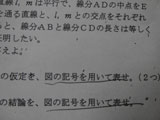 l, m は平行で、線分ADの中点をE
を通る直線と、l, m との交点をそれぞれ
と、線分ABと線分CDの長さは等しく
証明したい。
答えよ。
の仮定を、図の記号を用いて表せ。(2つ)
の結論を、図の記号を用いて表せ。